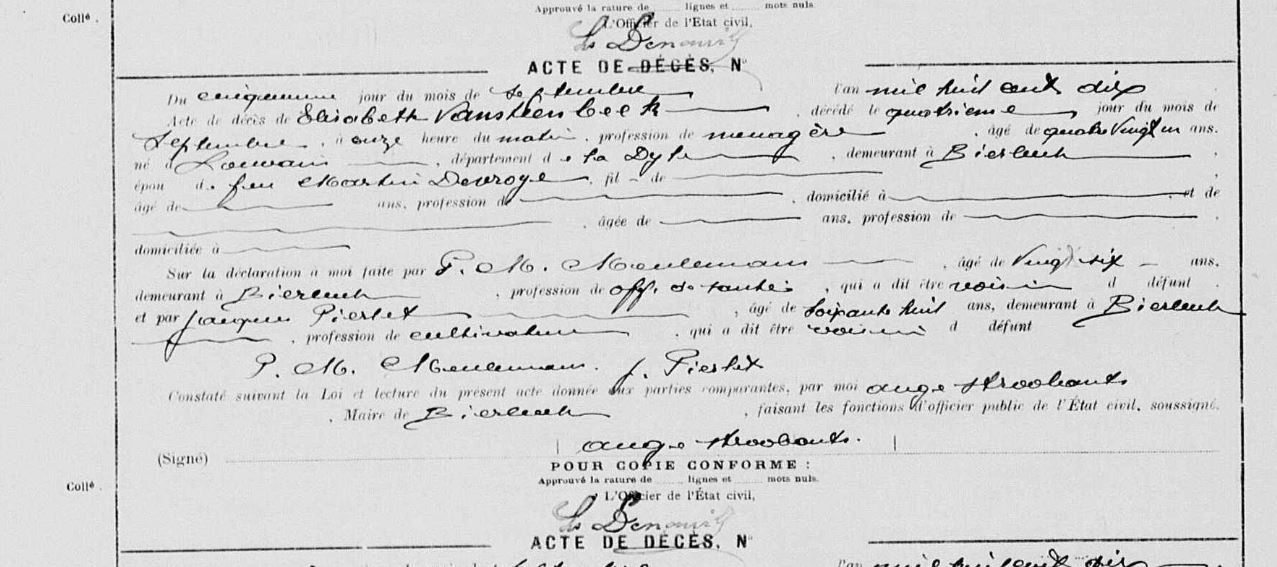 Approuvé la rature de lignes et mots nuls.
Collé.
L'Officier de l'État civil,
ACTE DE DÉCÈS, N°
Du cinquième jour du mois de septembre l'an mil huit cent dix
Acte de décès de Elisabeth Vansteenbeek, décédé le quatrième jour du mois de
septembre, à onze heure du matin, profession de menagère, âgé de quatre vingt un ans.
né à Louvain, département de la Dyle, demeurant à Bierbeek,
épou de feu Martin Devroye, fil de
âgé de ans, profession de, domicilié à et de
, âgée de ans, profession de,
domiciliée à
Sur la déclaration à moi faite par P. M. Meulemans, âgé de vingt six ans,
demeurant à Bierbeek, profession de off. de santé, qui a dit être voisin d défunt
et par Jacques Pierlet, âgé de soixante huit ans, demeurant à Bierbeek
, profession de cultivateur, qui a dit être voisin d défunt
P. M. Meulemans. J. Pierlet
Constaté suivant la Loi et lecture du présent acte donnée aux parties comparantes, par moi ange Stroobants
, Maire de Bierbeek, faisant les fonctions d'officier public de l'État civil, soussigné.
(Signé) ange Stroobants.
POUR COPIE CONFORME :
Collé.
Approuvé la rature de lignes et mots nuls.
L'Officier de l'État civil,
ACTE DE DÉCÈS, N°
l'an mil huit cent dix